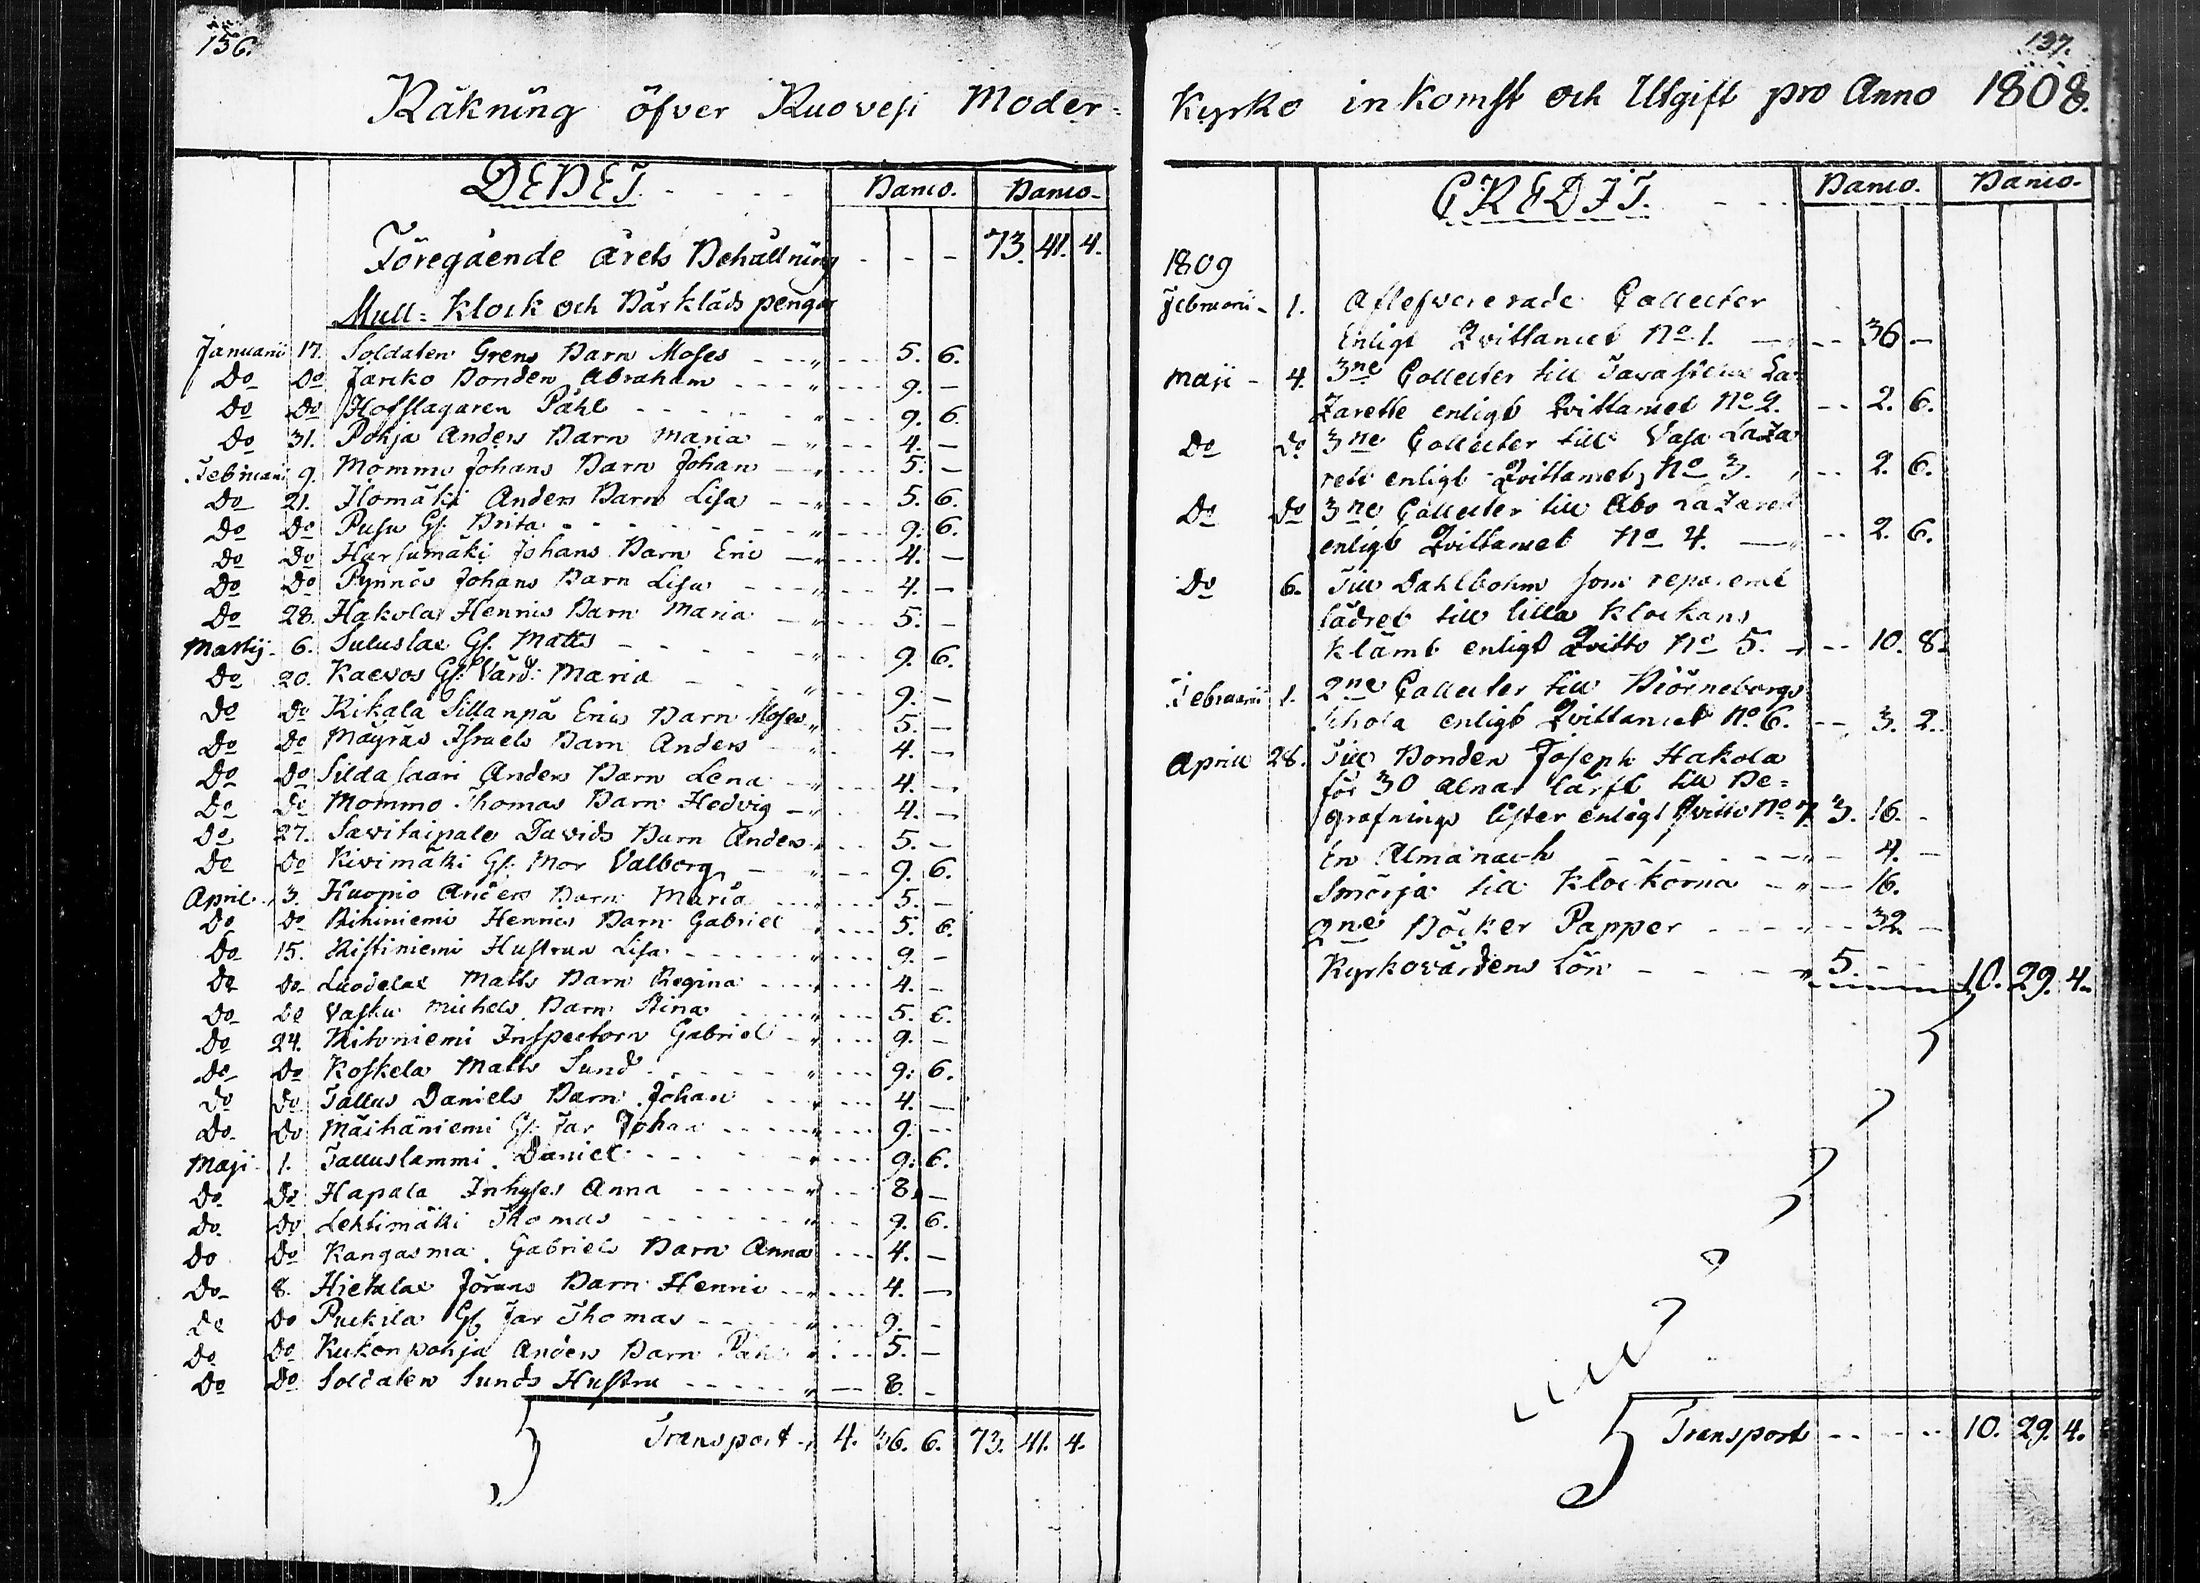 156.
Räkning öfver Ruovesi Moder=
DEBET. Banco. Banco.
Föregående årets Behållning - - - 73. 41. 4.
Mull= Klock och Bårkläds pengar
Januarii 17. Soldaten Grens Barn Moses 5. 6.
Do Do Jariko Bonden Abraham 9. -
Do Do Hofslagaren Påhl 9. 6.
Do 31. Pohja Anders Barn Maria 4. -
Februarii 9. Mommo Johans Barn Johan 5. -
Do 21. Homäki Anders Barn Lisa 5. 6.
Do Do Pusu Gf. Brita 9. 6.
Do Do Harjumäki Johans Barn Eric 4. -
Do Do Pynnös Johans Barn Lisa 4. -
Do 28. Hakola Hennes Barn Maria 5. -
Martij 6. Suluslax Gf. Matts 9. 6.
Do 20. Kaevos Gf. Värd: Maria 9. -
Do Do Rikala Sillanpä Erics Barn Moses 5. -
Do Do Mäyräs Israels Barn Anders 4. -
Do Do Silda saari Anders Barn Lena 4. -
Do Do Mommo Thomas Barn Hedvig 4. -
Do 27. Savitaipale Davids Barn Anders 5. -
Do Do Kivimäki Gf. Mor Valborg 9. 6.
April 3. Kuopio Anders Barn Maria 5. -
Do Do Rihiniemi Hennes Barn Gabriel 5. 6.
Do 15. Ristiniemi Hustrun Lisa 9. -
Do Do Luodelax Matts Barn Regina 4. -
Do Do Vasku Michels Barn Stina 5. 6.
Do 24. Ritoniemi Inspectorn Gabriel 9. -
Do Do Koskela Matts Sund 9. 6.
Do Do Tallus Daniels Barn Johan 4. -
Do Do Mäihäniemi Gf. Far Johan 9. -
Maji 1. Talluslammi Daniel 9. 6.
Do Do Hapala Inhyses Anna 8. -
Do Do Lehtimäki Thomas 9. 6.
Do Do Kangasma Gabriels Barn Anna 4. -
Do 8. Hietalax Jörans Barn Henric 4. -
Do Do Puckila Gf. Far Thomas 9. -
Do Do Kukonpohja Anders Barn Påhl 5. -
Do Do Soldaten Sunds Hustru 8. -
Transport 4. 36. 6. 73. 41. 4.
137.
Kyrko inkomst och Utgift pro Anno 1808.
CREDIT. Banco. Banco.
1809
Februarii 1. Aflefvererade Collecter
Enligt Qvittancet No 1. 36 -
Maji 4. 3ne Collecter till Tavastlene La-
zarette enligt Qvittancet No 2. 2. 6.
Do Do 3ne Collecter till Vasa Laza
rett enligt Qvittancet, No 3. 2. 6.
Do Do 3ne Collecter till Åbo Lazarett
enligt Qvittancet No 4. 2. 6.
Do 6. Till Dahlbohm som reparerat
lädret till lilla Klockans
Klämt enligt Qvitto No 5. 10. 8.
Februarii 1. 2ne Collecter till Biörneborgs
Schola enligt Qvittancet No 6. 3. 2.
Aprill 28. Till Bonden Joseph Hakola
för 30 alnar lärft till Be=
grafnings lister enligt Qvitto No 7. 3. 16. -
En Almanach 4. -
Smörja till Klockorna 16.
2ne Böcker Papper 32. -
Kyrkovärdens Lön 5. - - 10. 29. 4.
Transport 10. 29. 4.